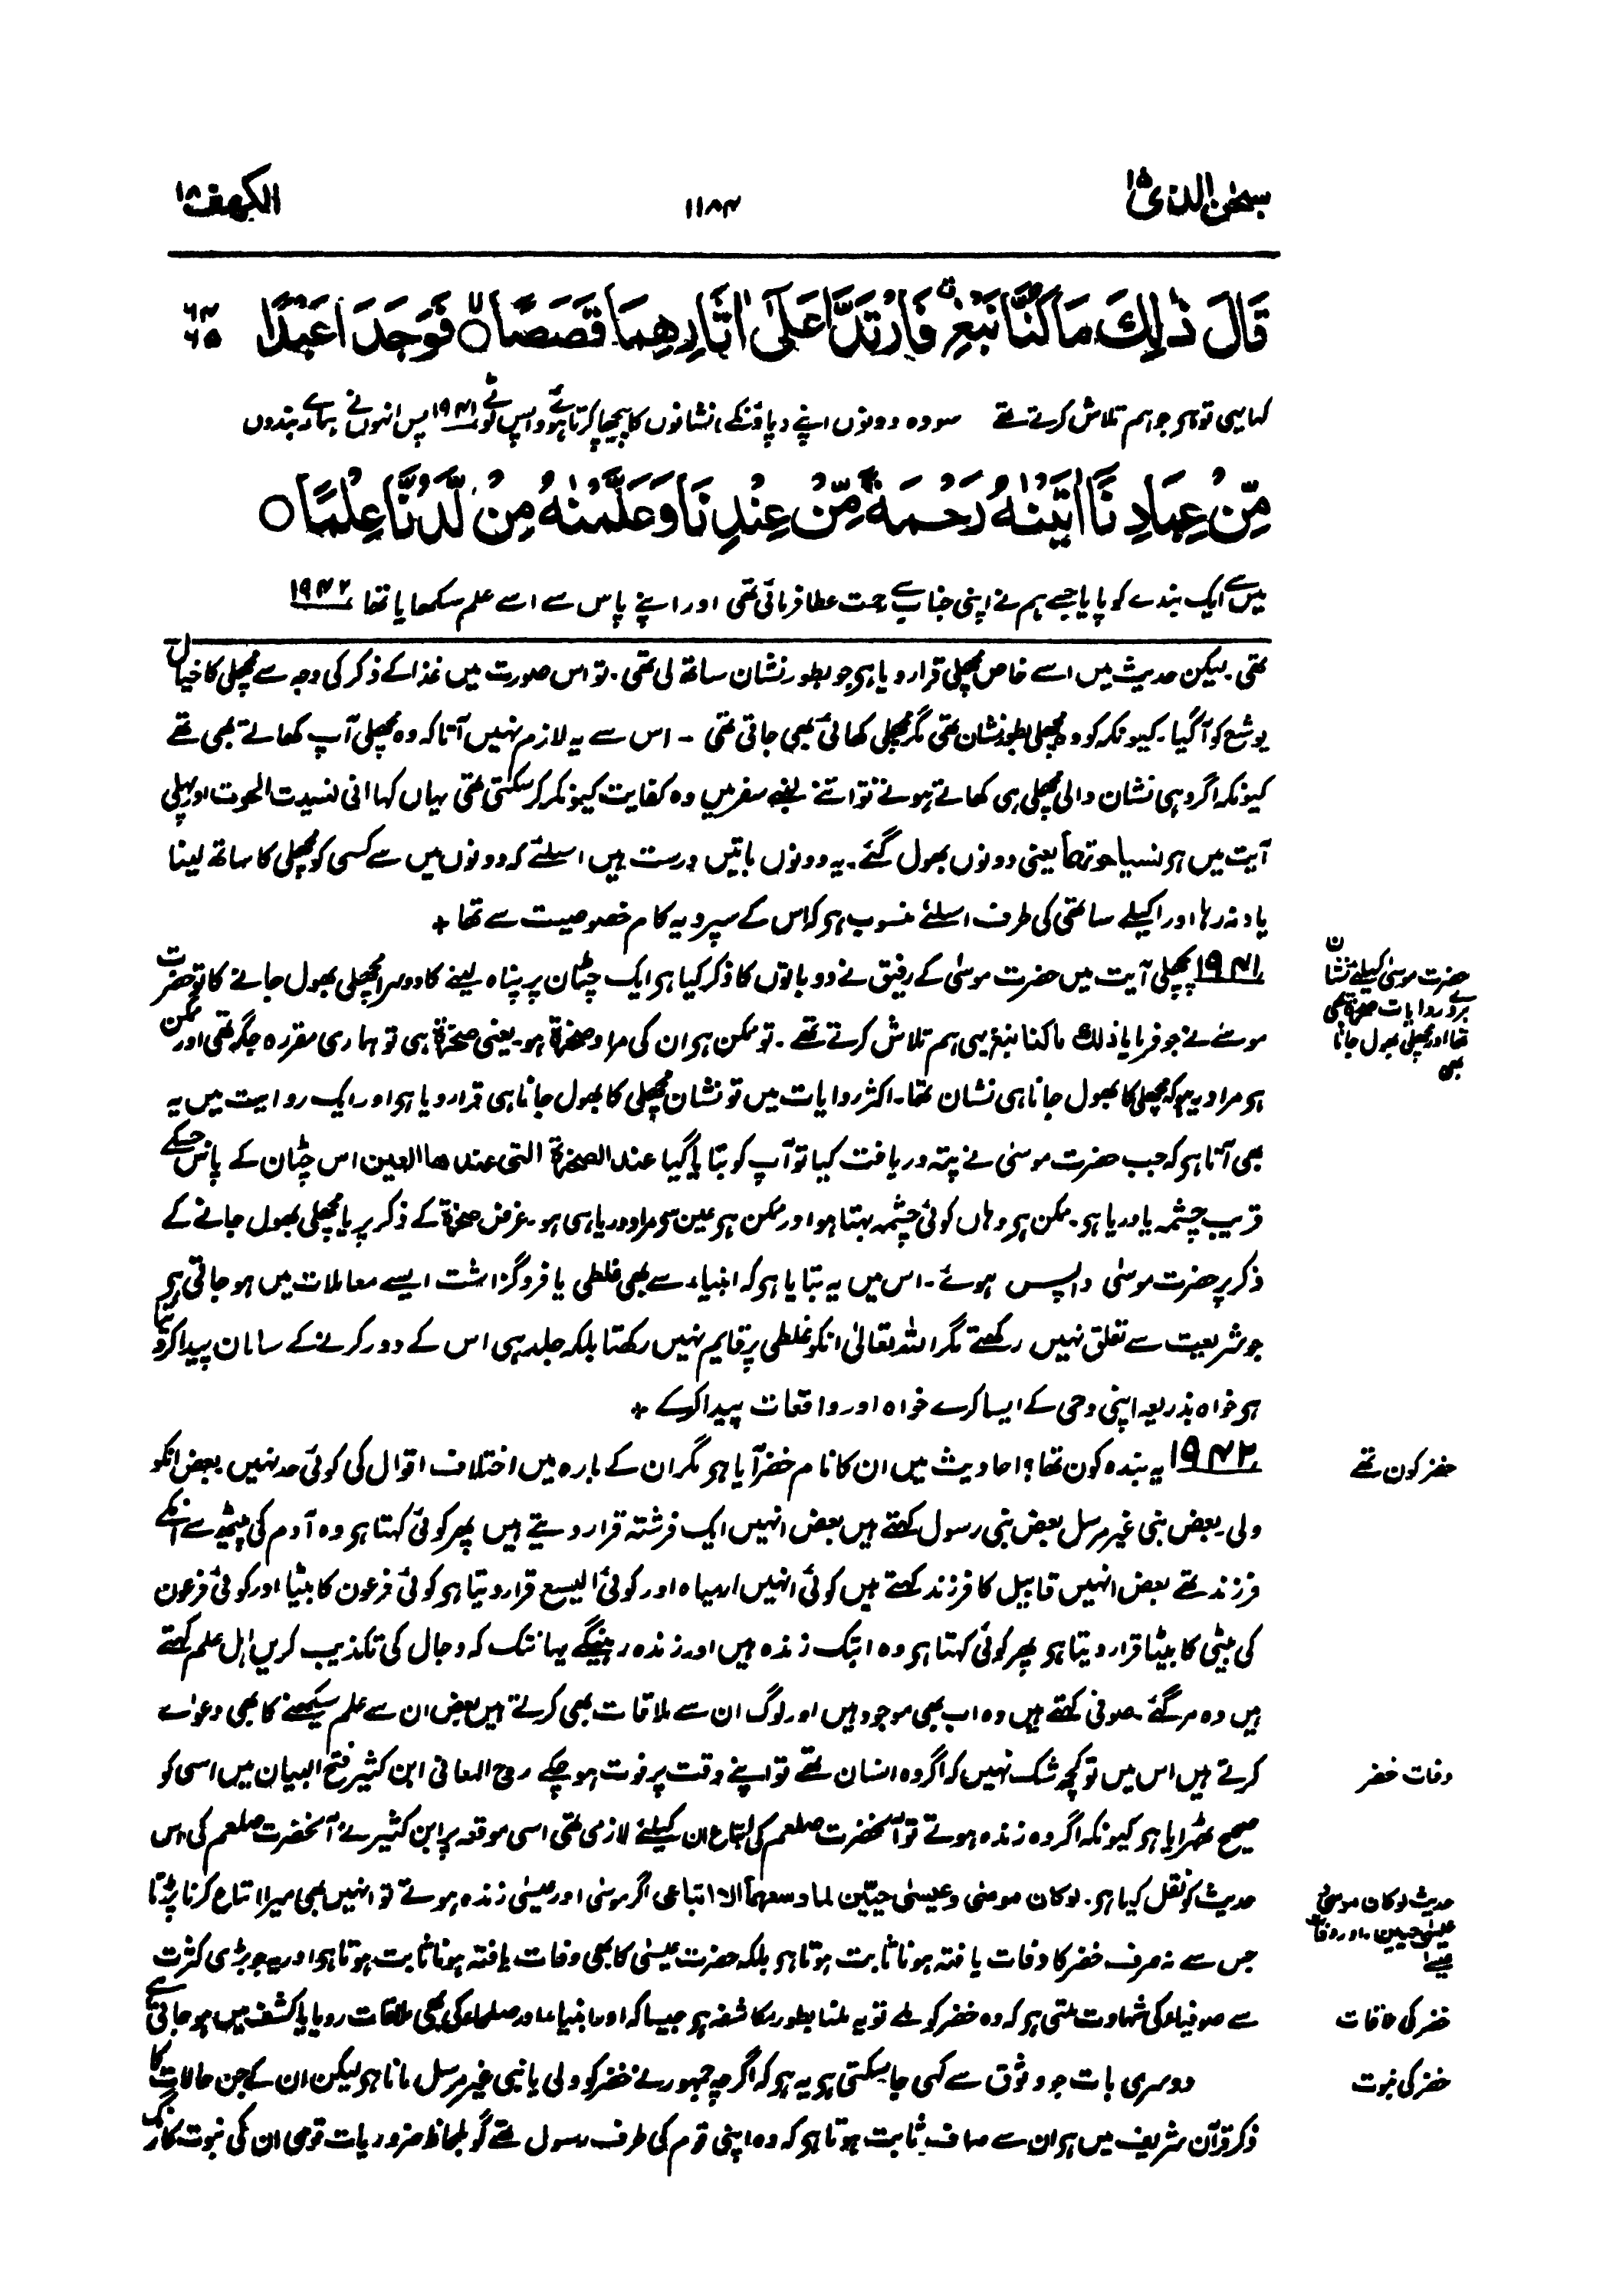 سبحٰن الذی ۱۵
۱۱۸۴
الکہف ۱۸
قَالَ ذٰلِكَ مَا كُنَّا نَبْغِ ۖ فَارْتَدَّا عَلٰٓى اٰثَارِهِمَا قَصَصًا ۙ فَوَجَدَا عَبْدًا
۶۴
۶۵
کہا یہی تو ہو جو ہم تلاش کرتے تھے سو وہ دونوں اپنے (پاؤنکے) نشانوں کا پیچھا کرتے ہوئے واپس لوٹے ۱۹۴۱ پس انہوں نے ہمارے بندوں
مِّنْ عِبَادِنَآ اٰتَيْنٰهُ رَحْمَةً مِّنْ عِنْدِنَا وَعَلَّمْنٰهُ مِنْ لَّدُنَّا عِلْمًا ○
میں سے ایک بندے کو پایا جسے ہم نے اپنی جناب سے رحمت عطا فرمائی تھی اور اپنے پاس سے اسے علم سکھایا تھا ۱۹۴۲
تھی۔ لیکن حدیث میں اسے خاص مچھلی قرار دیا ہو جو بطور نشان ساتھ لی تھی۔ تو اس صورت میں غذا کے ذکر کی وجہ سے مچھلی کا خیال
یوشع کو آگیا۔ کیونکہ گو وہ مچھلی بطور نشان تھی مگر مچھلی کھائی بھی جاتی تھی۔ اس سے یہ لازم نہیں آتا کہ وہ مچھلی آپ کھاتے بھی تھے
کیونکہ اگر وہی نشان والی مچھلی ہی کھاتے ہوتے تو اتنے لمبے سفر میں وہ کفایت کیونکر کرسکتی تھی یہاں کہا انی نسیت الحوت اور پہلی
آیت میں ہو نسیا حوتھما یعنی دونوں بھول گئے۔ یہ دونوں باتیں درست ہیں اسلئے کہ دونوں میں سے کسی کو مچھلی کا ساتھ لینا
یاد نہ رہا اور اکیلے ساتھی کی طرف اسلئے منسوب ہو کہ اس کے سپرد یہ کام خصوصیت سے تھا +
۱۹۴۱ پچھلی آیت میں حضرت موسیٰ کے رفیق نے دو باتوں کا ذکر کیا ہو ایک چٹان پر پناہ لینے کا دوسرا مچھلی بھول جانے کا تو حضرت
موسےٰ نے جو فرمایا ذلك ماکنا نبغ یہی ہم تلاش کرتے تھے۔ تو ممکن ہو ان کی مراد صخرۃ ہو۔ یعنی صخرۃ ہی تو ہماری مقررہ جگہ تھی اور ممکن
ہو مراد یہ ہو کہ مچھلی کا بھول جانا ہی نشان تھا۔ اکثر روایات میں تو نشان مچھلی کا بھول جانا ہی قرار دیا ہو اور ایک روایت میں یہ
بھی آتا ہو کہ جب حضرت موسیٰ نے پتہ دریافت کیا تو آپ کو بتایا گیا عند الصخرۃ التی عندھا العین اس چٹان کے پاس جسکے
قریب چشمہ یا دریا ہو۔ ممکن ہو وہاں کوئی چشمہ بہتا ہو اور ممکن ہو عین سو مراد دریا ہی ہو۔ غرض صخرۃ کے ذکر پر یا مچھلی بھول جانے کے
ذکر پر حضرت موسیٰ واپس ہوئے۔ اس میں یہ بتایا ہو کہ انبیاء سے بھی غلطی یا فروگزاشت ایسے معاملات میں ہوجاتی ہو
جو شریعت سے تعلق نہیں رکھتے مگر اللہ تعالیٰ انکو غلطی پر قایم نہیں رکھتا بلکہ جلد ہی اس کے دور کرنے کے سامان پیدا کردیتا
ہو خواہ بذریعہ اپنی وحی کے ایسا کرے خواہ اور واقعات پیدا کرکے +
۱۹۴۲ یہ بندہ کون تھا؟ احادیث میں ان کا نام خضر آیا ہو مگر ان کے بارہ میں اختلاف اقوال کی کوئی حد نہیں بعض انکو
ولی۔ بعض نبی غیر مرسل بعض نبی رسول کہتے ہیں بعض انہیں ایک فرشتہ قرار دیتے ہیں پھر کوئی کہتا ہو وہ آدم کی پیٹھ سے انکے
فرزند تھے بعض انہیں قابیل کا فرزند کہتے ہیں کوئی انہیں ارمیاہ اور کوئی الیسع قرار دیتا ہو کوئی فرعون کا بیٹا اور کوئی فرعون
کی بیٹی کا بیٹا قرار دیتا ہو پھر کوئی کہتا ہو وہ ابتک زندہ ہیں اور زندہ رہینگے یہانتک کہ دجال کی تکذیب کریں اہل علم کہتے
ہیں وہ مرگئے۔ صوفی کہتے ہیں وہ اب بھی موجود ہیں اور لوگ ان سے ملاقات بھی کرتے ہیں بعض ان سے علم سیکھنے کا بھی دعوٰے
کرتے ہیں اس میں تو کچھ شک نہیں کہ اگر وہ انسان تھے تو اپنے وقت پر فوت ہوچکے روح المعانی ابن کثیر فتح البیان میں اسی کو
صحیح ٹھرایا ہو کیونکہ اگر وہ زندہ ہوتے تو آنحضرت صلعم کی اتباع ان کیلئے لازمی تھی اسی موقعہ پر ابن کثیر نے آنحضرت صلعم کی اس
حدیث کو نقل کیا ہو۔ لوکان موسٰی وعیسٰی حیّین لما وسعھما الا اتباعی اگر موسٰی اور عیسٰی زندہ ہوتے تو انہیں بھی میرا اتباع کرنا پڑتا
جس سے نہ صرف خضر کا وفات یافتہ ہونا ثابت ہوتا ہو بلکہ حضرت عیسیٰ کا بھی وفات یافتہ ہونا ثابت ہوتا ہو اور یہ جو بڑی کثرت
سے صوفیاء کی شہادت ملتی ہو کہ وہ خضر کو ملے تو یہ ملنا بطور مکاشفہ ہو جیسا کہ اور انبیاء اور صلحاء کی بھی ملاقات رویا یا کشف میں ہوجاتی ہے
دوسری بات جو وثوق سے کہی جاسکتی ہو یہ ہو کہ اگرچہ جمہور نے خضر کو ولی یا نبی غیر مرسل مانا ہو لیکن ان کے جن حالات کا
ذکر قرآن شریف میں ہو ان سے صاف ثابت ہوتا ہو کہ وہ اپنی قوم کی طرف رسول تھے گو بلحاظ ضروریات قومی ان کی نبوت کا رنگ
حضرت موسٰی کیلئے نشان
بروے روایات صخرۃ بھی
تھا اور مچھلی بھول جانا
بھی
خضر کون تھے
وفات خضر
حدیث لوکان موسٰی
عیسٰی حیین۔ اور وفات
عیسےٰ
خضر کی ملاقات
خضر کی نبوت